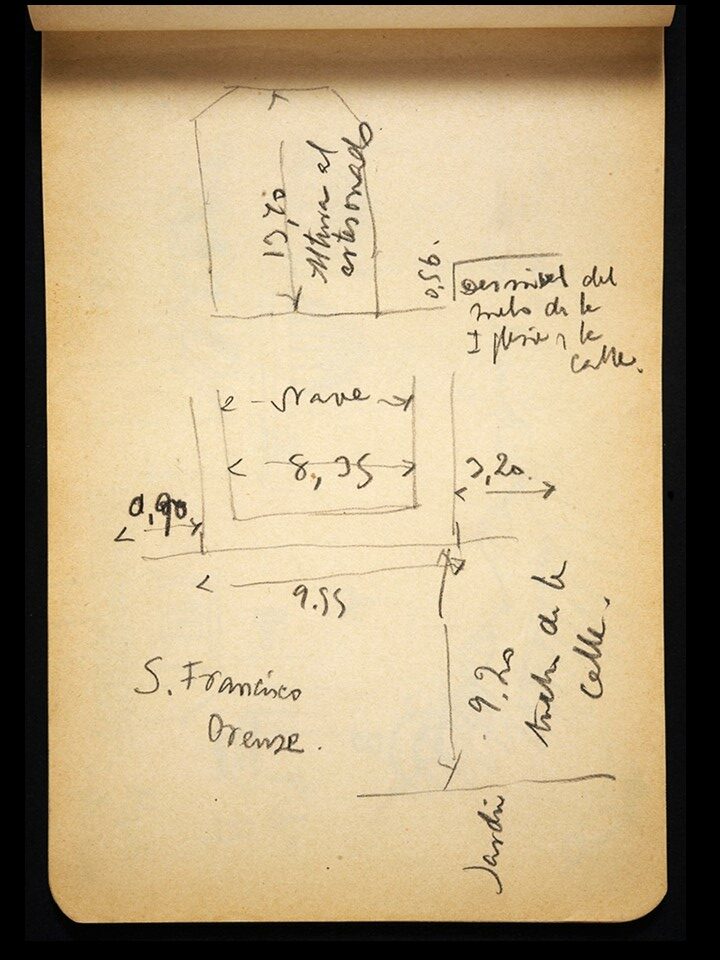 13,70
Altura al
artesonado
0,56.
Desnivel del
suelo de la
Iglesia y la
calle.
Nave
8,35
3,20.
0,90
9.55
9,20
de la
calle.
S. Francisco
Orense.
Jardin